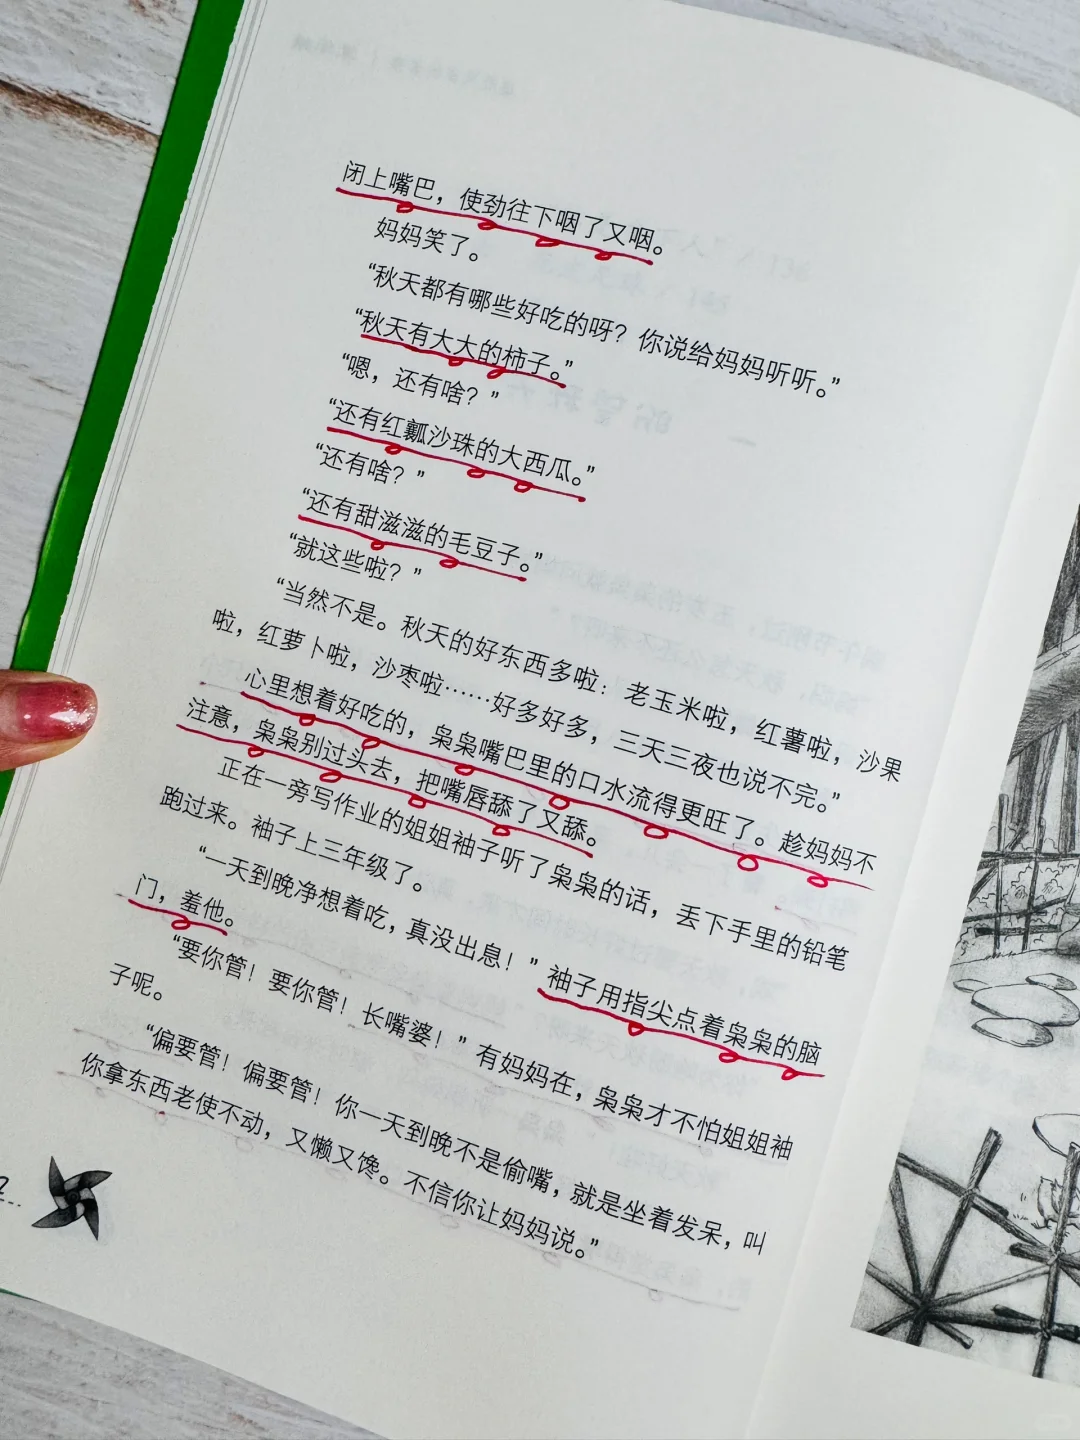 闭上嘴巴，使劲往下咽了又咽。
妈妈笑了。
“秋天都有哪些好吃的呀？你说给妈妈听听。”
“秋天有大大的柿子。”
“嗯，还有啥？”
“还有红瓤沙珠的大西瓜。”
“还有啥？”
“还有甜滋滋的毛豆子。”
“就这些啦？”
“当然不是。秋天的好东西多啦：老玉米啦，红薯啦，沙果
啦，红萝卜啦，沙枣啦……好多好多，三天三夜也说不完。”
心里想着好吃的，枭枭嘴巴里的口水流得更旺了。趁妈妈不
注意，枭枭别过头去，把嘴唇舔了又舔。
正在一旁写作业的姐姐袖子听了枭枭的话，丢下手里的铅笔
跑过来。袖子上三年级了。
“一天到晚净想着吃，真没出息！”袖子用指尖点着枭枭的脑
门，羞他。
“要你管！要你管！长嘴婆！”有妈妈在，枭枭才不怕姐姐袖
子呢。
“偏要管！偏要管！你一天到晚不是偷嘴，就是坐着发呆，叫
你拿东西老使不动，又懒又馋。不信你让妈妈说。”